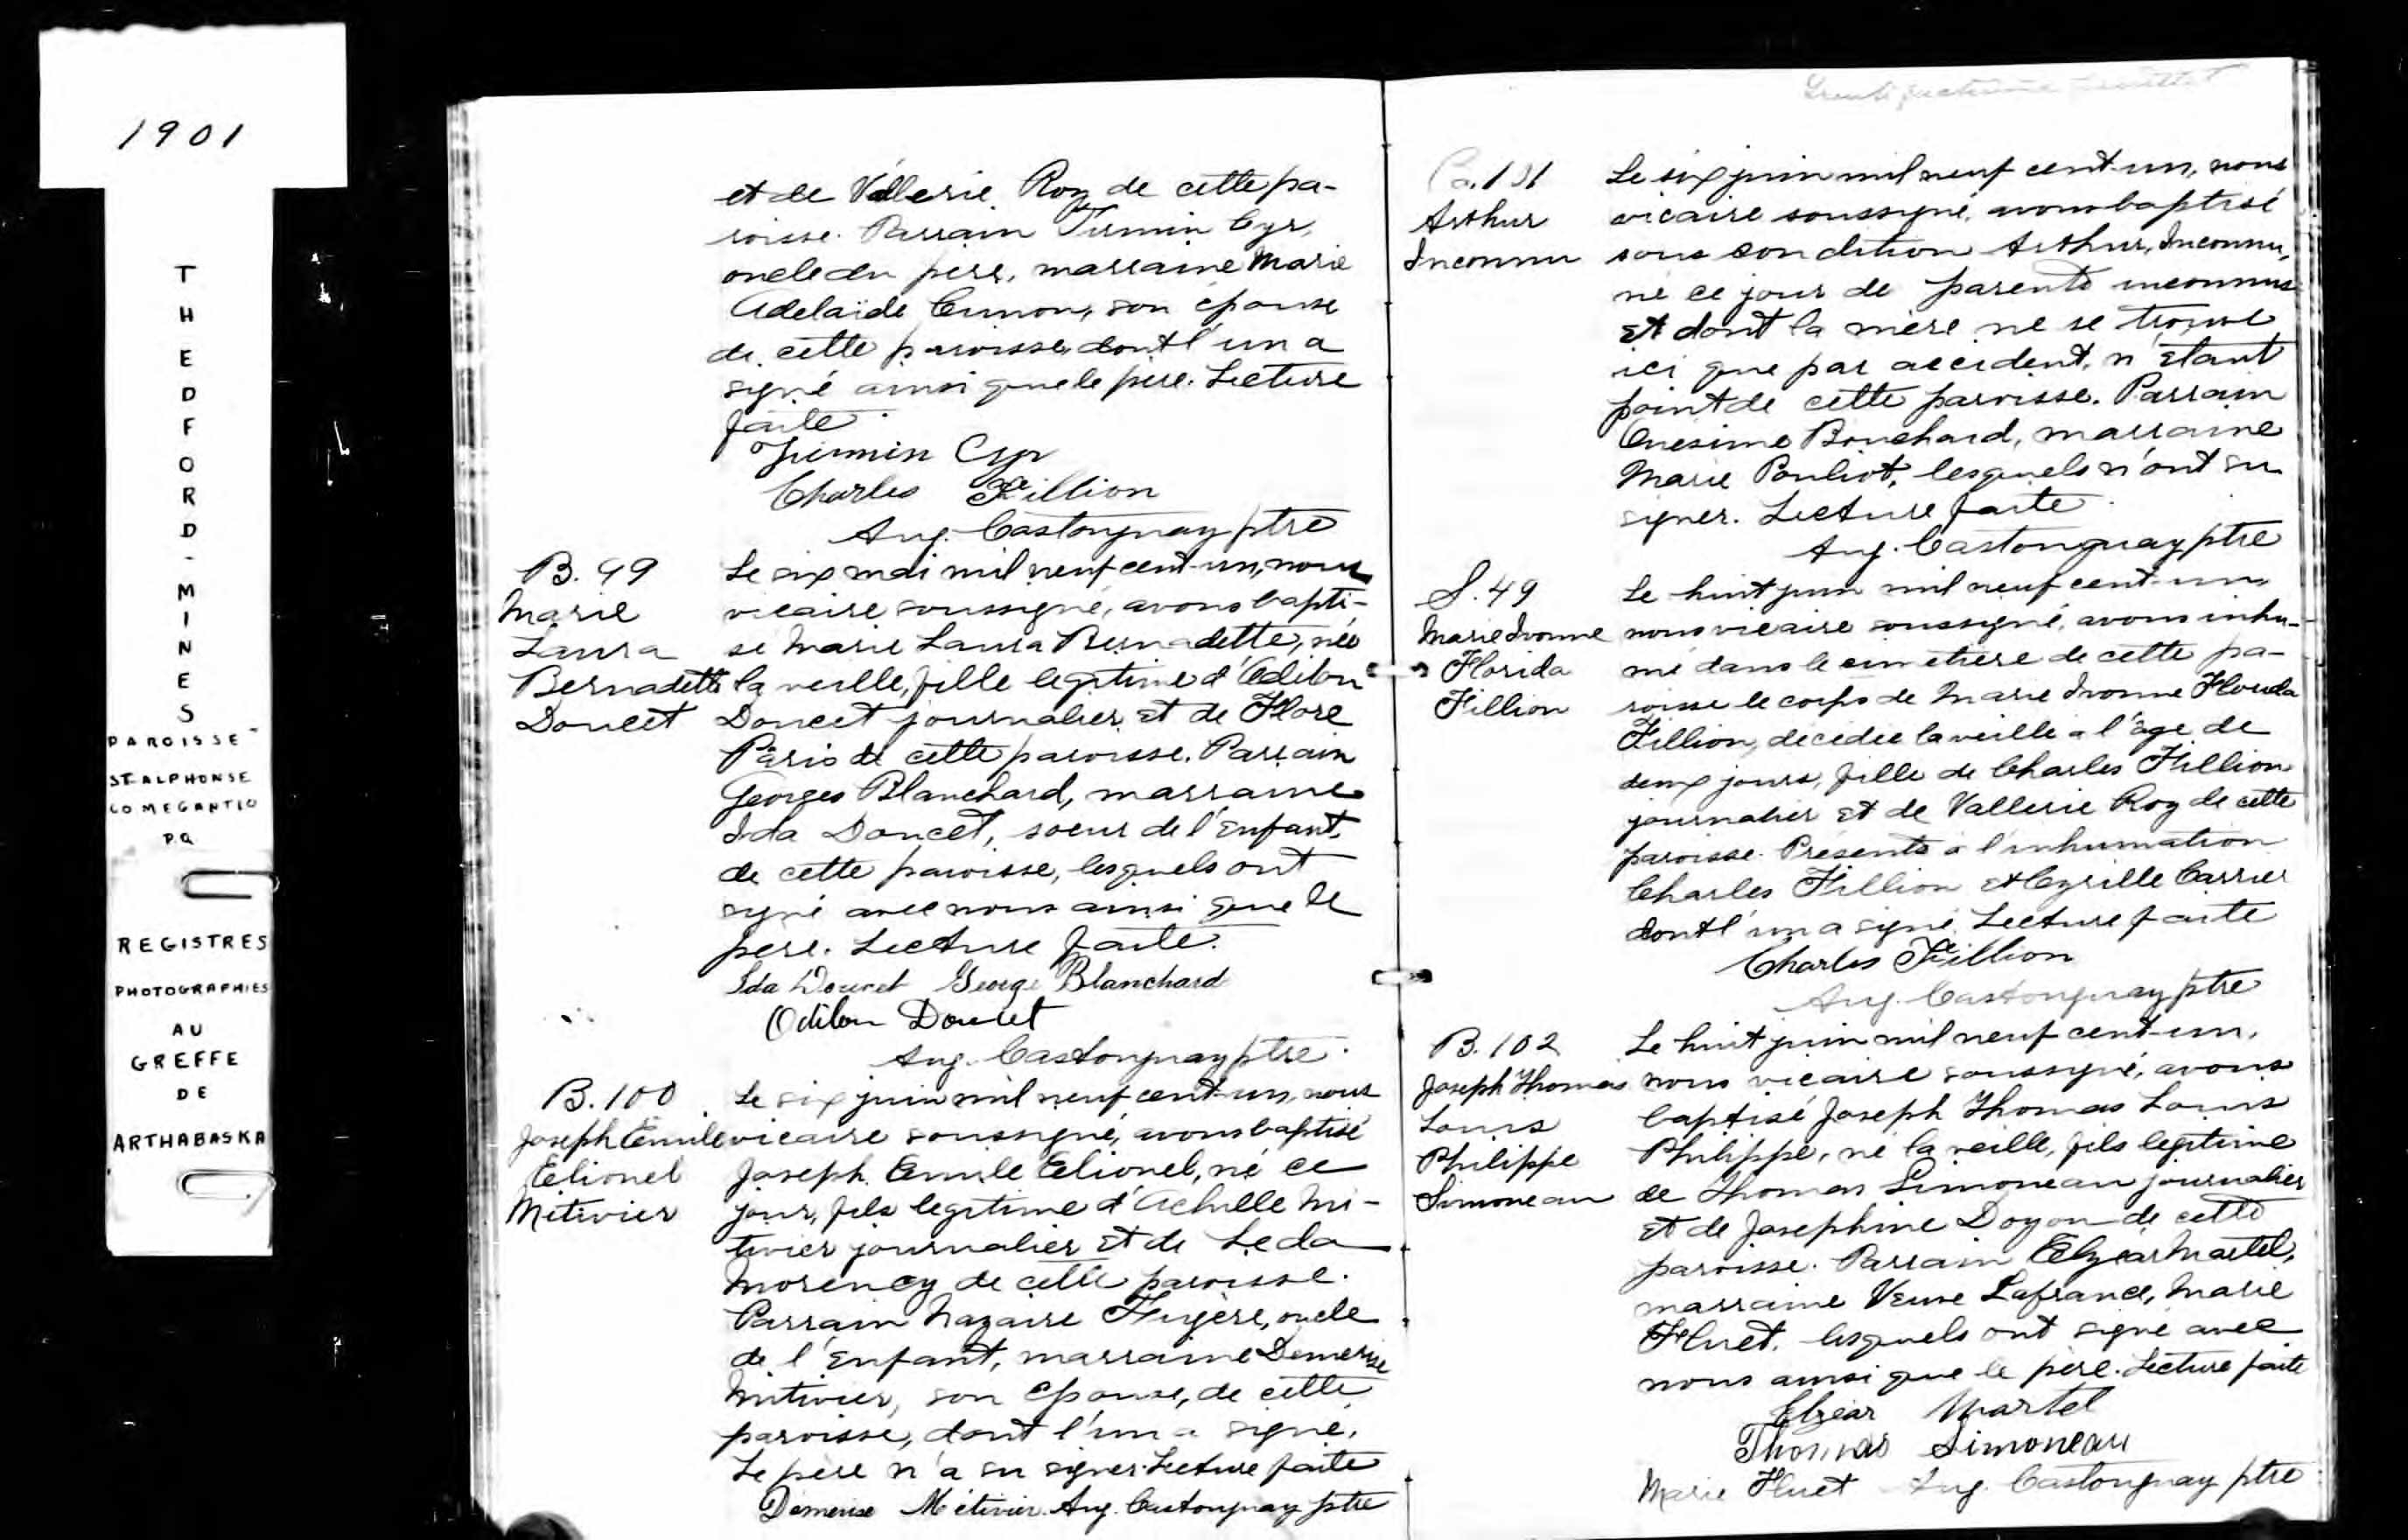 1901
THEDFORD-MINES
PAROISSE
ST ALPHONSE
CO MEGANTIC
P.Q
REGISTRES
PHOTOGRAPHIES
AU
GREFFE
DE
ARTHABASKA
et de Vallerie Roy de cette pa-
roisse. Parrain Firmin Cyr,
oncle du père, marraine Marie
Adelaïde son épouse
de cette paroisse dont l'un a
signé ainsi que le père. Lecture
faite.
Firmin Cyr
Charles Fillion
Aug. Castonguay ptre
B. 99
Marie
Laura
Bernadette
Doucet
Le six mai mil neuf cent-un, nous
vicaire soussigné, avons bapti-
sé Marie Laura Bernadette, née
la veille, fille legitime d'Odilon
Doucet journalier et de Flore
Paris de cette paroisse. Parrain
Georges Blanchard, marraine
Ida Doucet, soeur de l'enfant,
de cette paroisse, lesquels ont
signé avec nous ainsi que le
père. Lecture faite.
Ida Doucet George Blanchard
Odilon Doucet
Aug. Castonguay ptre.
B. 100
Joseph Emile
Elionel
Mitivier
Le six juin mil neuf cent-un, nous
vicaire soussigné, avons baptisé
Joseph Emile Elionel, né ce
jour, fils legitime d'Achille Mi-
tivier journalier et de Leda
Morency de cette paroisse.
Parrain Nazaire Fugère, oncle
de l'enfant, marraine Demerise
Mitivier, son épouse, de cette
paroisse, dont l'un a signé.
Le père n'a su signer. Lecture faite
Démerise Métivier. Aug. Castonguay ptre
feuillet
B. 101
Arthur
Inconnu
Le six juin mil neuf cent-un, nous
vicaire soussigné, avons baptisé
sous condition Arthur, Inconnu,
né ce jour de parents inconnus
et dont la mère ne se trouve
ici que par accident, n'étant
point de cette paroisse. Parrain
Onesime Bouchard, marraine
Marie Pouliot, lesquels n'ont su
signer. Lecture faite.
Aug. Castonguay ptre
S. 49
Marie Ivonne
Florida
Fillion
Le huit juin mil neuf cent-un,
nous vicaire soussigné, avons inhu-
mé dans le cimetière de cette pa-
roisse le corps de Marie Ivonne Florida
Fillion, décédée la veille a l'âge de
deux jours, fille de Charles Fillion
journalier et de Vallerie Roy de cette
paroisse. Présents à l'inhumation
Charles Fillion et Cyrille Carrier
dont l'un a signé. Lecture faite
Charles Fillion
Aug. Castonguay ptre
B. 102
Joseph Thomas
Louis
Philippe
Simoneau
Le huit juin mil neuf cent-un,
nous vicaire soussigné, avons
baptisé Joseph Thomas Louis
Philippe, né la veille, fils legitime
de Thomas Simoneau journalier
et de Josephine Doyon de cette
paroisse. Parrain Elzéar Martel,
marraine Veuve Lafrance, Marie
Huet, lesquels ont signé avec
nous ainsi que le père. Lecture faite
Elzear Martel
Thomas Simoneau
Marie Huet Aug. Castonguay ptre